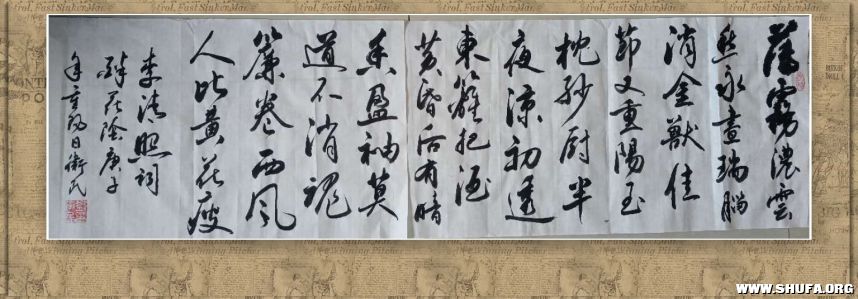 薄霧濃雲
愁永晝瑞腦
消金獸佳
節又重陽玉
枕紗厨半
夜涼初透
東籬把酒
黄昏后有暗
香盈袖莫
道不消魂
簾卷西風
人比黄花瘦
李清照詞
醉花陰庚子
年重陽日衛民
WWW.SHUFA.ORG